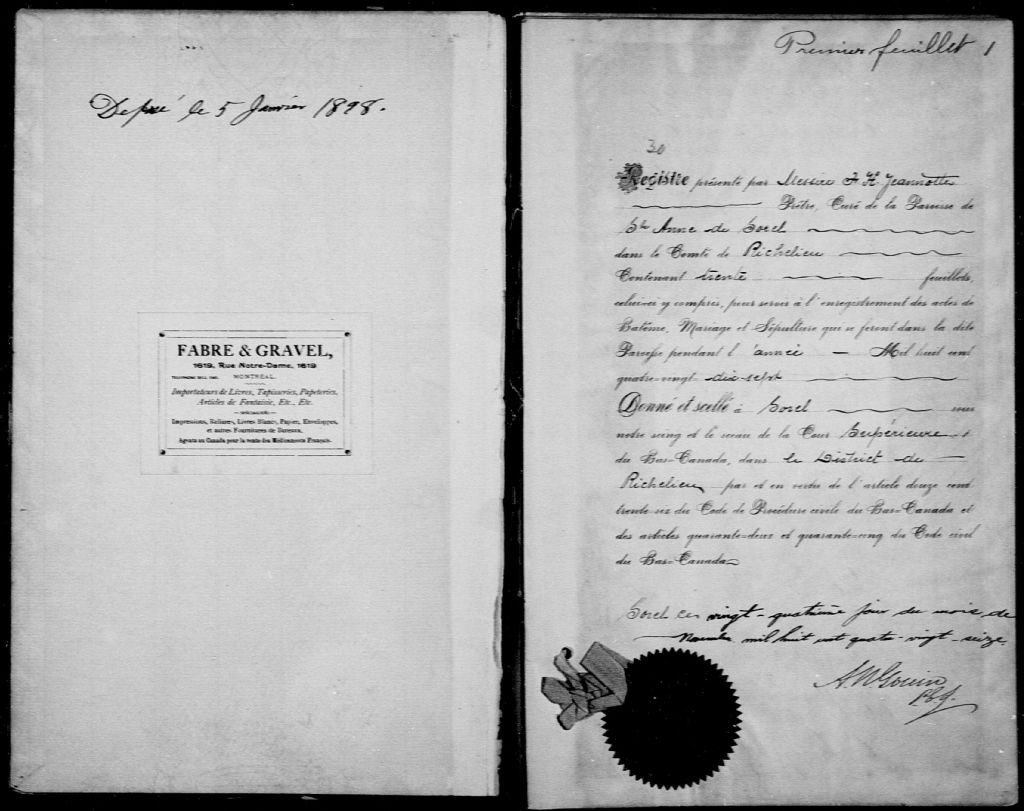 Deposé le 5 Janvier 1898.
FABRE & GRAVEL,
1619, Rue Notre-Dame, 1619
MONTREAL.
Importateurs de Livres, Tapisseries, Papeteries,
Articles de Fantaisie, Etc., Etc.
—SPÉCIALITÉS—
Impressions, Reliures, Livres Blancs, Papier, Enveloppes,
et autres Fournitures de Bureaux.
Agents au Canada pour la vente des Médicaments Français.
Premier feuillet 1
30
Registre présenté par Messire Jeannotte
Prêtre, Curé de la Paroisse de
Ste Anne de Sorel
dans le Comté de Richelieu
Contenant trente feuillets,
celui-ci y compris, pour servir à l'enregistrement des actes de
Batême, Mariage et Sépulture qui se feront dans la dite
Paroisse pendant l'année — Mil huit cent
quatre-vingt dix-sept
Donné et scellé à Sorel sous
notre seing et le sceau de la Cour Supérieure
du Bas-Canada, dans le District de
Richelieu par et en vertu de l'article douze cent
trente-six du Code de Procédure civile du Bas-Canada et
des articles quarante-deux et quarante-cinq du Code civil
du Bas-Canada
Sorel ce vingt-quatrième jour du mois de
Novembre mil huit cent quatre-vingt-seize.
A N Gouin
P.C.S.